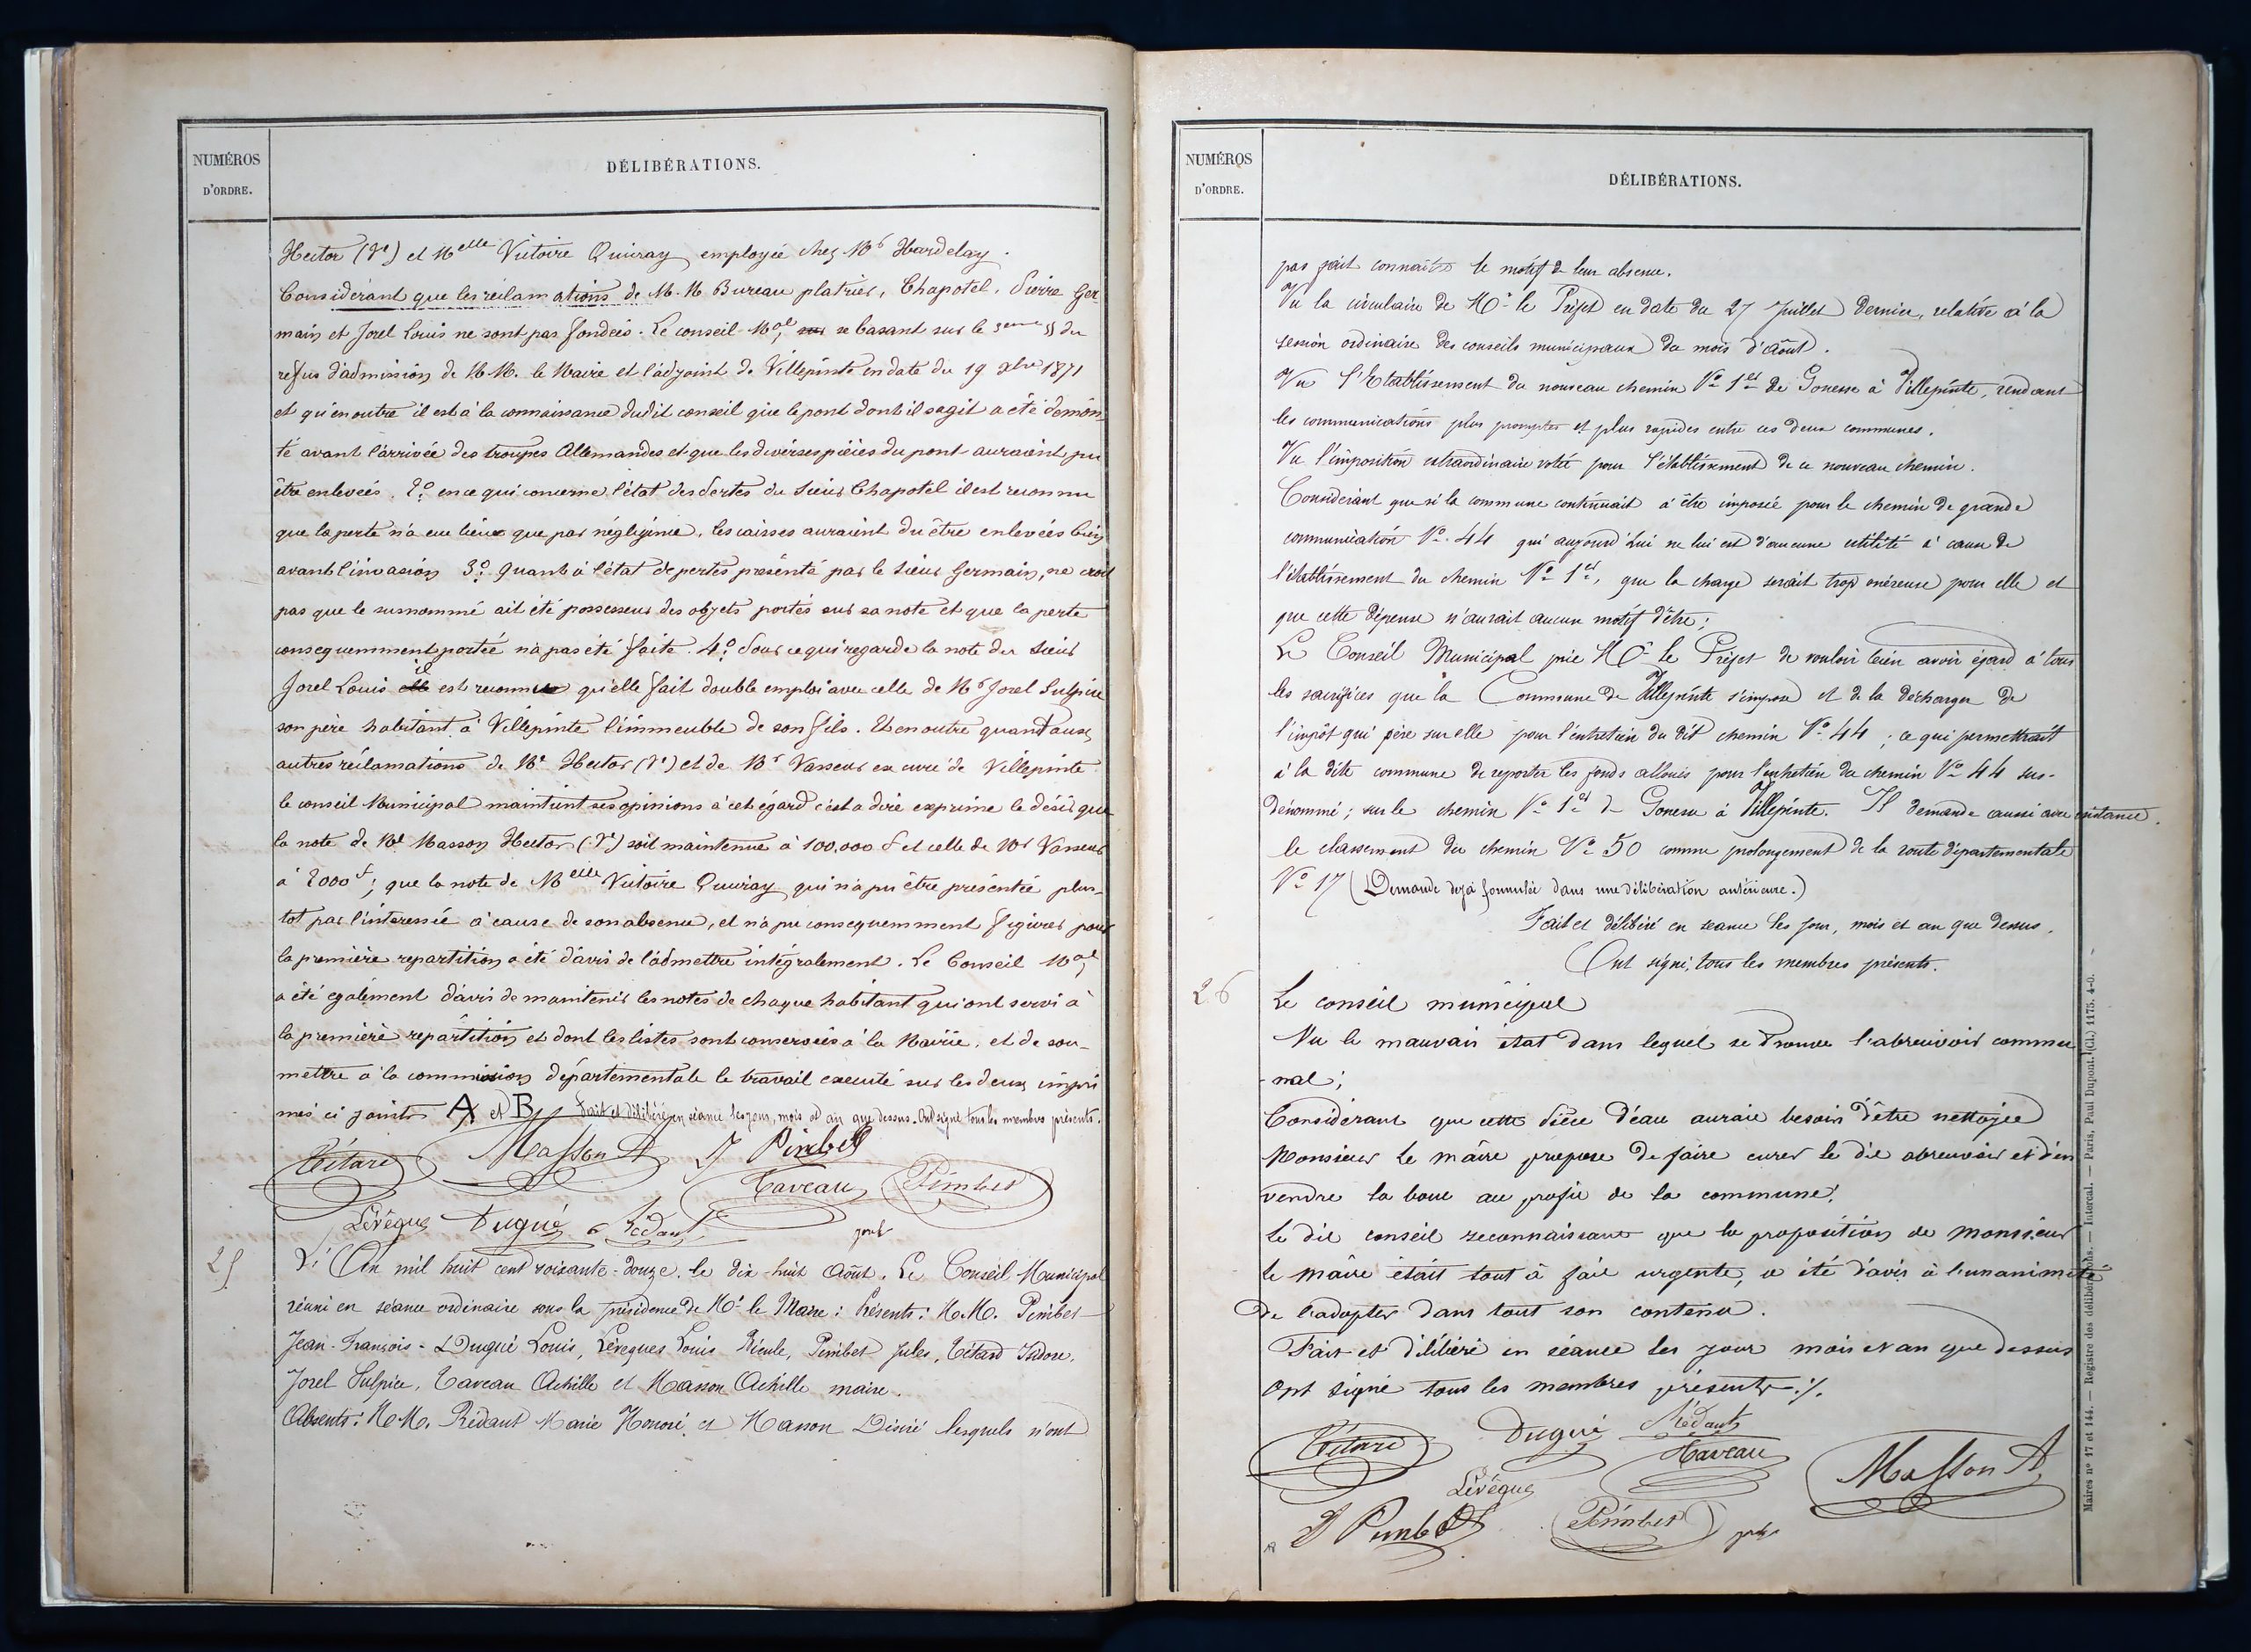 NUMÉROS
D'ORDRE.
DÉLIBÉRATIONS.
Hector (Ve) et Melle Victoire Quivray employée chez Mr Hardelay.
Considérant que les réclamations de M.M. Bureau platrier, Chapotel, Pierre Ger
main et Jorel Louis ne sont pas fondées. Le conseil Mal, se basant sur le 3eme § du
refus d'admission de M.M. le Maire et l'adjoint de Villepinte en date du 19 xbre 1871
et qu'en outre il est à la connaissance dudit conseil que le pont dont il sagit a été démon
té avant l'arrivée des troupes Allemandes et que les diverses pièces du pont auraient pu
être enlevées. 2o en ce qui concerne l'état des Pertes du sieur Chapotel il est reconnu
que la perte n'a eu lieux que par négligence, les caisses auraient du être enlevées bien
avant l'invasion 3o Quant à l'état de pertes présenté par le sieur Germain, ne croit
pas que le surnommé ait été possesseur des objets portés sur sa note et que la perte
consequemment portée n'a pas été faite. 4o Pour ce qui regarde la note du sieur
Jorel Louis il est reconnu qu'elle fait double emploi avec celle de Mr Jorel Sulpice
son père habitant à Villepinte l'immeuble de son fils. Et en outre quant aux
autres réclamations de Me Hector (Ve) et de Mr Vasseur ex curé de Villepinte
le conseil Municipal maintient ses opinions à cet égard c'est a dire exprime le désir que
la note de Me Masson Hector (Ve) soit maintenue à 100.000 f et celle de Mr Vasseur
à 2000f; que la note de Melle Victoire Quivray qui n'a pu être présentée plus-
tot par l'intéressée à cause de son absence, et n'a pu consequemment figurer pour
la première repartition a été d'avis de l'admettre intégralement. Le Conseil Mal
a été également d'avis de maintenir les notes de chaque habitant qui ont servi à
la première repartition et dont les listes sont conservées à la Mairie, et de sou-
mettre à la commission départementale le travail executé sur les deux impri
més ci joints A et B Fait et délibéré en séance les jour, mois et an que dessus. Ont signé tous les membres présents.
Tétard Masson A J Pimbet
Taveau Pimbet
Lévêque Dugué Rédaut
25
L'An mil huit cent soixante-douze, le dix-huit Août. Le Conseil Municipal
réuni en séance ordinaire sous la présidence de Mr le Maire: Présents: M.M. Pimbet
Jean-François - Dugué Louis, Lévêques Louis Rieule, Pimbet Jules, Tétard Isidore,
Jorel Sulpice, Taveau Achille et Masson Achille maire.
Absents: M.M. Rédaut Marie Honoré, et Masson Désiré lesquels n'ont
NUMÉROS
D'ORDRE.
DÉLIBÉRATIONS.
pas fait connaître le motif de leur absence.
Vu la circulaire de Mr le Préfet en date du 27 Juillet Dernier, relative à la
session ordinaire des conseils municipaux du mois d'Août.
Vu l'Etablissement du nouveau chemin No 1er de Gonesse à Villepinte, rendant
les communications plus promptes et plus rapides entre ces deux communes.
Vu l'imposition extraordinaire votée pour l'établissement de ce nouveau chemin.
Considérant que si la commune continuait à être imposée pour le chemin de grande
communication No. 44 qui aujourd'hui ne lui est d'aucune utilité à cause de
l'établissement du chemin No 1er, que la charge serait trop onéreuse pour elle et
que cette dépense n'aurait aucun motif d'être;
Le Conseil Municipal prie Mr le Préfet de vouloir bien avoir égard à tous
les sacrifices que la Commune de Villepinte s'impose et de la décharger de
l'impôt qui pèse sur elle pour l'entretien du dit chemin No 44; ce qui permettrait
à la dite commune de reporter les fonds alloués pour l'entretien du chemin No 44 sus-
dénommé; sur le chemin No 1er de Gonesse à Villepinte. Il demande aussi avec instance.
le classement du chemin No 50 comme prolongement de la route départementale
No 17 (Demande déjà formulée dans une délibération antérieure.)
Fait et délibéré en séance les jour, mois et an que dessus,
Ont signé, tous les membres présents.
26
Le conseil municipal
Vu le mauvais état dans lequel se trouve l'abreuvoir commu
-nal;
Considérant que cette Pièce d'eau aurait besoin d'être nettoyée
Monsieur le maire propose de faire curer le dit abreuvoir et d'en
vendre la boue au profit de la commune.
Le dit conseil reconnaissant que la proposition de monsieur
le maire était tout à fait urgente, a été d'avis à l'unanimité
de l'adopter dans tout son contenu.
Fait et délibéré en séance les jour mois et an que dessus
Ont signé tous les membres présents ./.
Tétard Dugué Rédaut
Taveau Masson A
Lévêque
J Pimbet Pimbet
Maires no 17 et 144. — Registre des délibérations. — Intercal. — Paris, Paul Dupont. (cl.) 1175. 4-0.